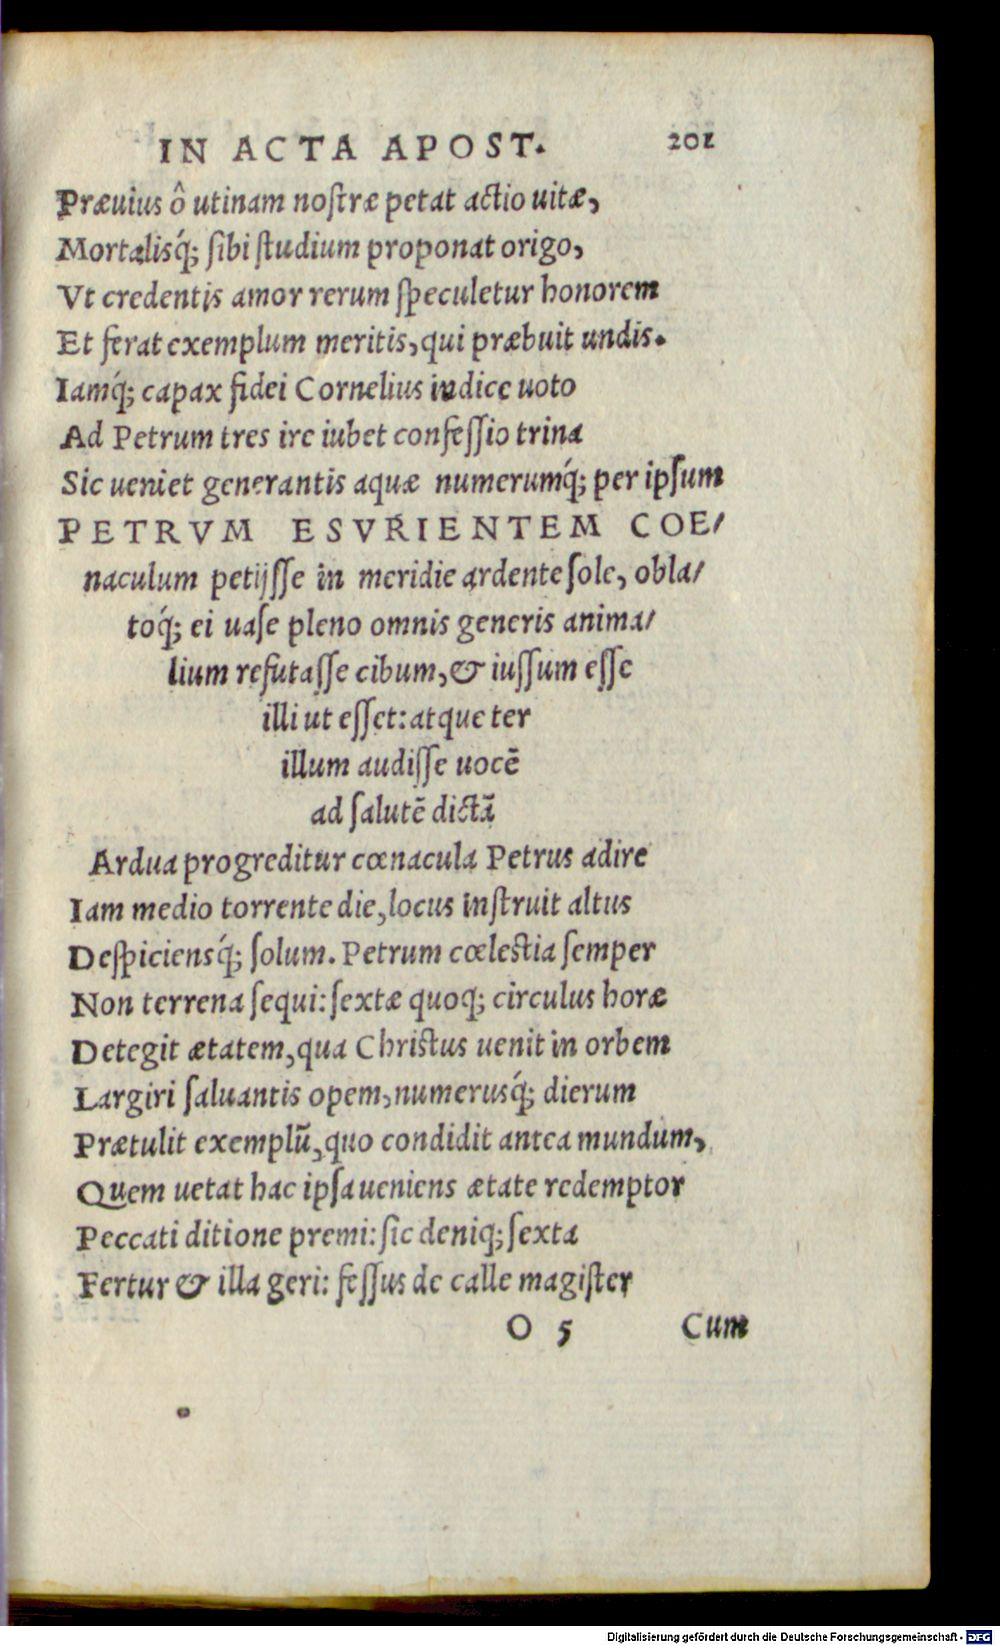 IN ACTA APOST. 201
Præuius ô utinam noſtræ petat actio uitæ,
Mortalisq́; ſibi ſtudium proponat origo,
Vt credentis amor rerum ſpeculetur honorem
Et ferat exemplum meritis, qui præbuit undis.
Iamq́; capax fidei Cornelius indice uoto
Ad Petrum tres ire iubet confeſſio trina
Sic ueniet generantis aquæ numerumq́; per ipſum
PETRVM ESVRIENTEM COE/
naculum petijſſe in meridie ardente ſole, obla/
toq́; ei uaſe pleno omnis generis anima/
lium refutaſſe cibum, & iuſſum eſſe
illi ut eſſet: atque ter
illum audiſſe uocē
ad ſalutē dictā
Ardua progreditur cœnacula Petrus adire
Iam medio torrente die, locus inſtruit altus
Deſpiciensq́; ſolum. Petrum cœleſtia ſemper
Non terrena ſequi: ſextæ quoq; circulus horæ
Detegit ætatem, qua Chriſtus uenit in orbem
Largiri ſaluantis opem, numerusq́; dierum
Prætulit exemplū, quo condidit antea mundum,
Quem uetat hac ipſa ueniens ætate redemptor
Peccati ditione premi: ſic deniq; ſexta
Fertur & illa geri: feſſus de calle magiſter
O 5 Cum
Digitalisierung gefördert durch die Deutsche Forschungsgemeinschaft - DFG